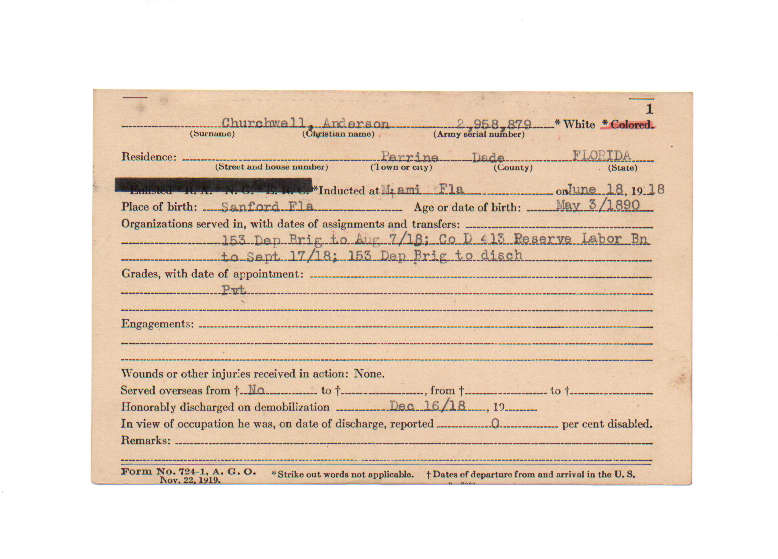 1
Churchwell, Anderson 2,958,879 * White * Colored.
(Surname) (Christian name) (Army serial number)
Residence: Perrine Dade FLORIDA
(Street and house number) (Town or city) (County) (State)
* Enlisted * R. A. * N. G. * E. R. C. * Inducted at Miami Fla on June 18, 1918
Place of birth: Sanford Fla Age or date of birth: May 3/1890
Organizations served in, with dates of assignments and transfers:
153 Dep Brig to Aug 7/18; Co D 413 Reserve Labor Bn
to Sept 17/18; 153 Dep Brig to disch
Grades, with date of appointment:
Pvt
Engagements:
Wounds or other injuries received in action: None.
Served overseas from † No to †, from † to †
Honorably discharged on demobilization Dec 16/18, 19
In view of occupation he was, on date of discharge, reported 0 per cent disabled.
Remarks:
Form No. 724-1, A. G. O. * Strike out words not applicable. † Dates of departure from and arrival in the U. S.
Nov. 22, 1919.